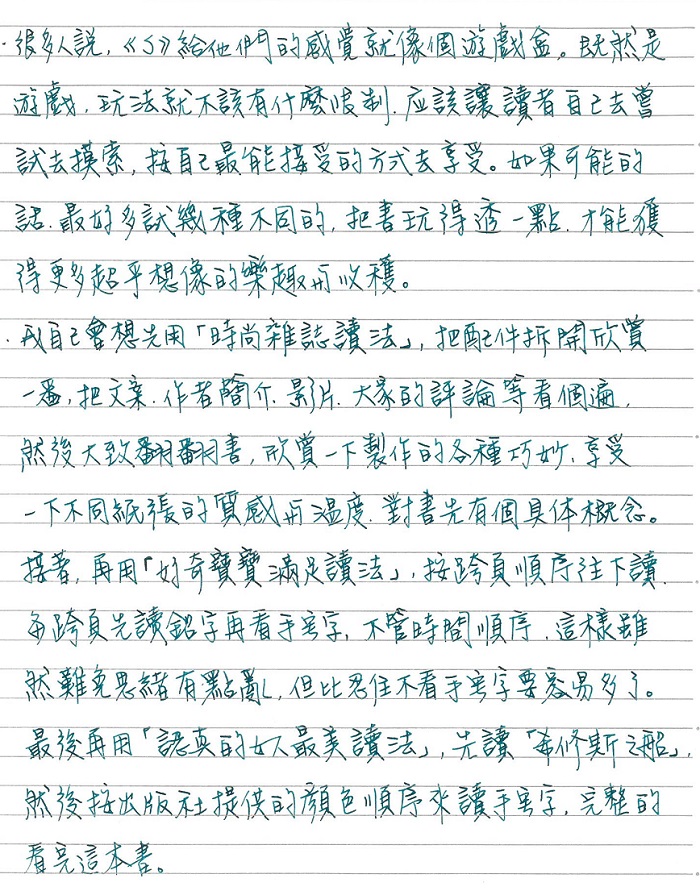 ·很多人說,《S》給他們的感覺就像個遊戲盒。既然是
遊戲,玩法就不該有什麼限制,应該讓讀者自己去嘗
試去摸索,按自己最能接受的方式去享受。如果可能的
話,最好多試幾種不同的,把書玩得透一點,才能獲
得更多超乎想像的樂趣与收穫。
·我自己會想先用「時尚雜誌讀法」,把配件拆開欣賞
一番,把文案、作者簡介、影片、大家的評論等看個遍,
然後大致翻翻書,欣賞一下製作的各種巧妙,享受
一下不同紙張的質感与溫度,對書先有個具体概念。
接著,再用「好奇寶寶滿足讀法」,按跨頁順序往下讀,
每跨頁先讀鉛字再看手写字,不管時間順序,這樣雖
然難免思緒有點亂,但比忍住不看手写字要容易多了。
最後再用「認真的女人最美讀法」,先讀「希修斯之船」,
然後按出版社提供的顏色順序來讀手写字,完整的
看完這本書。